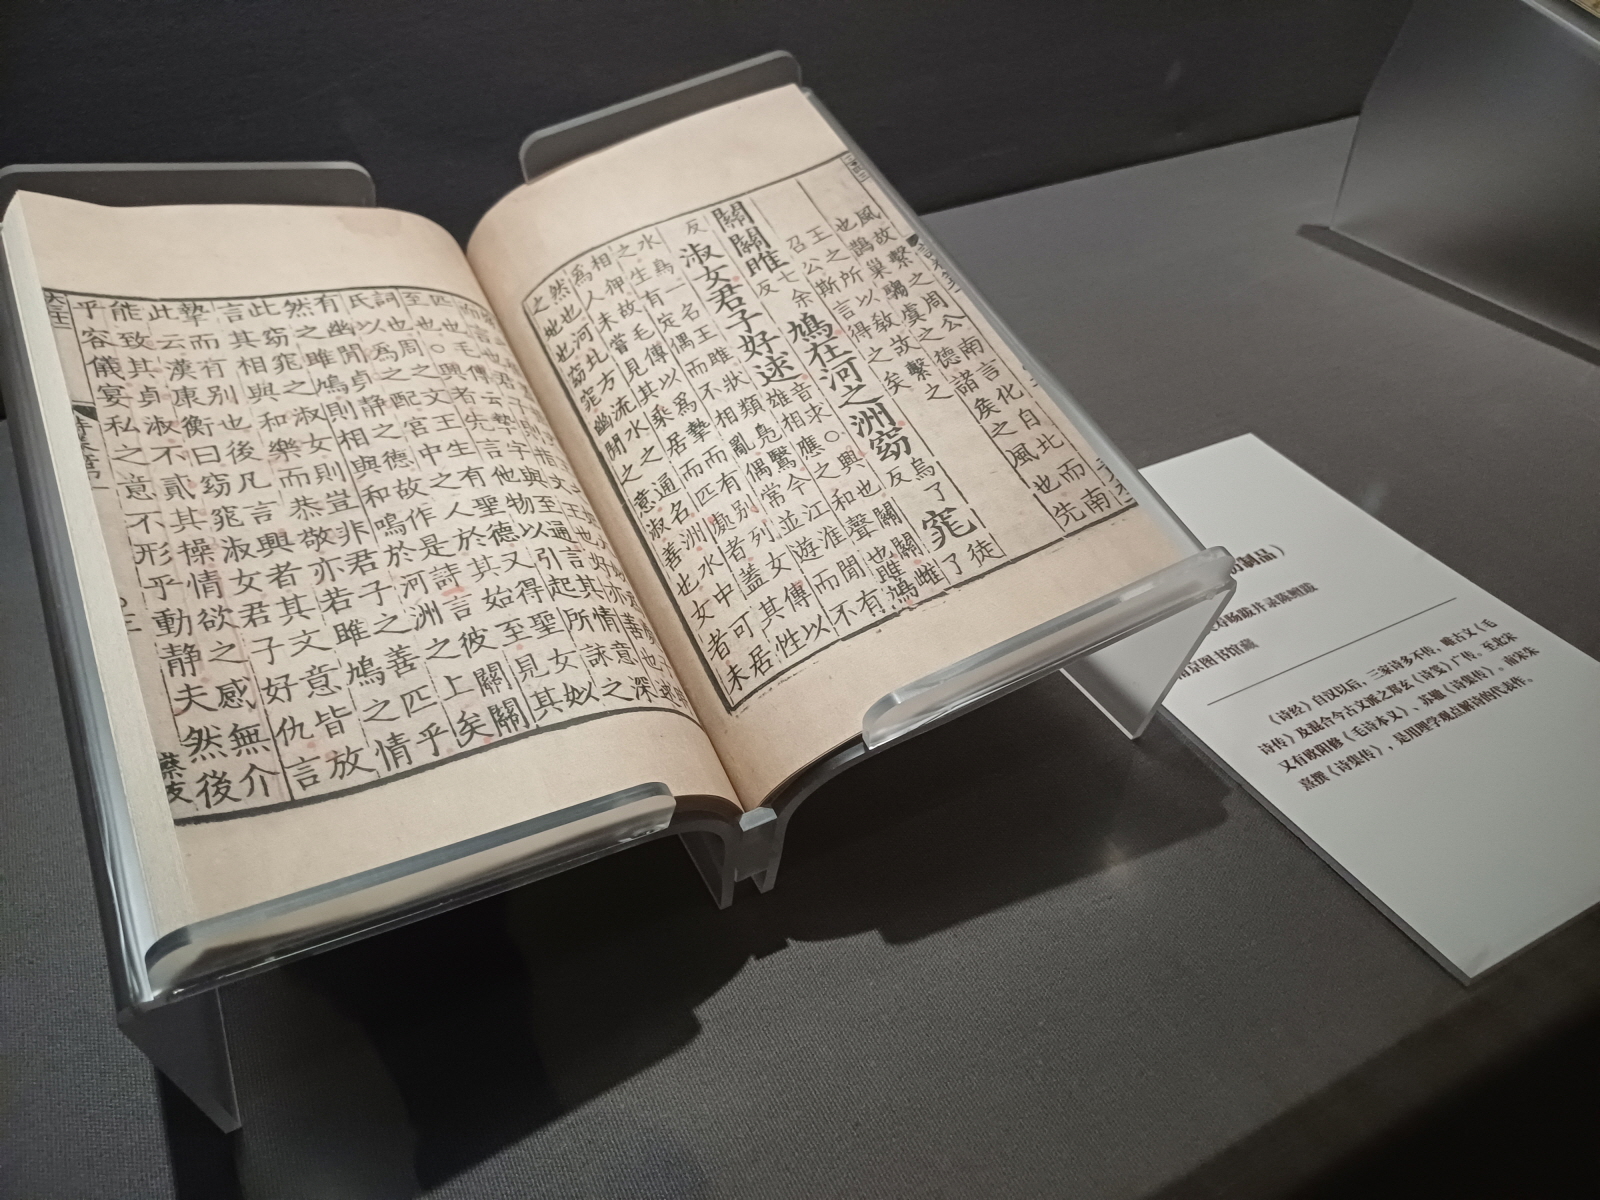 風故繫之周公南言化自北而南
也鵲巢騶虞之德諸侯之風也先
王之所以教故繫之
召公斯言得之矣
關關雎七余反鳩在河之洲窈烏了反窕徒了
反淑女君子好逑音求○興也關關雌
雄相應之和聲也雎鳩
水鳥一名王雎狀類鳧鷖今江淮間有
之生有定偶而不相亂偶常並遊而不
相狎故毛傳以為摯而有別列女傳以
為人未嘗見其乘居而匹處者蓋其性
然也河北方流水之通名洲水中可居
之地也窈窕幽閒之意淑善也女者未
匹也毛傳云摯字與至通言其情意深
至也○興者先言他物以引起所詠之
詞也周之文王生有聖德又得聖女姒
氏以為之配宮中之人於其始至見其
有幽閒貞靜之德故作是詩言彼關關
然之雎鳩則相與和鳴於河洲之上矣
此窈窕之淑女則豈非君子之善匹乎
言其相與和樂而恭敬亦若雎鳩之情
摯而有別也後凡言興者其文意皆放
此云漢康衡曰窈窕淑女君子好仇言
能致其貞淑不貳其操情欲之感無介
乎容儀宴私之意不形乎動靜夫然後
制品）
跋并录陈鳣跋
南京图书馆藏
《诗经》自汉以后，三家诗多不传，唯古文《毛
诗传》及混合今古文派之郑玄《诗笺》广传。至北宋
又有欧阳修《毛诗本义》、苏辙《诗集传》。南宋朱
熹撰《诗集传》，是用理学观点解诗的代表作。